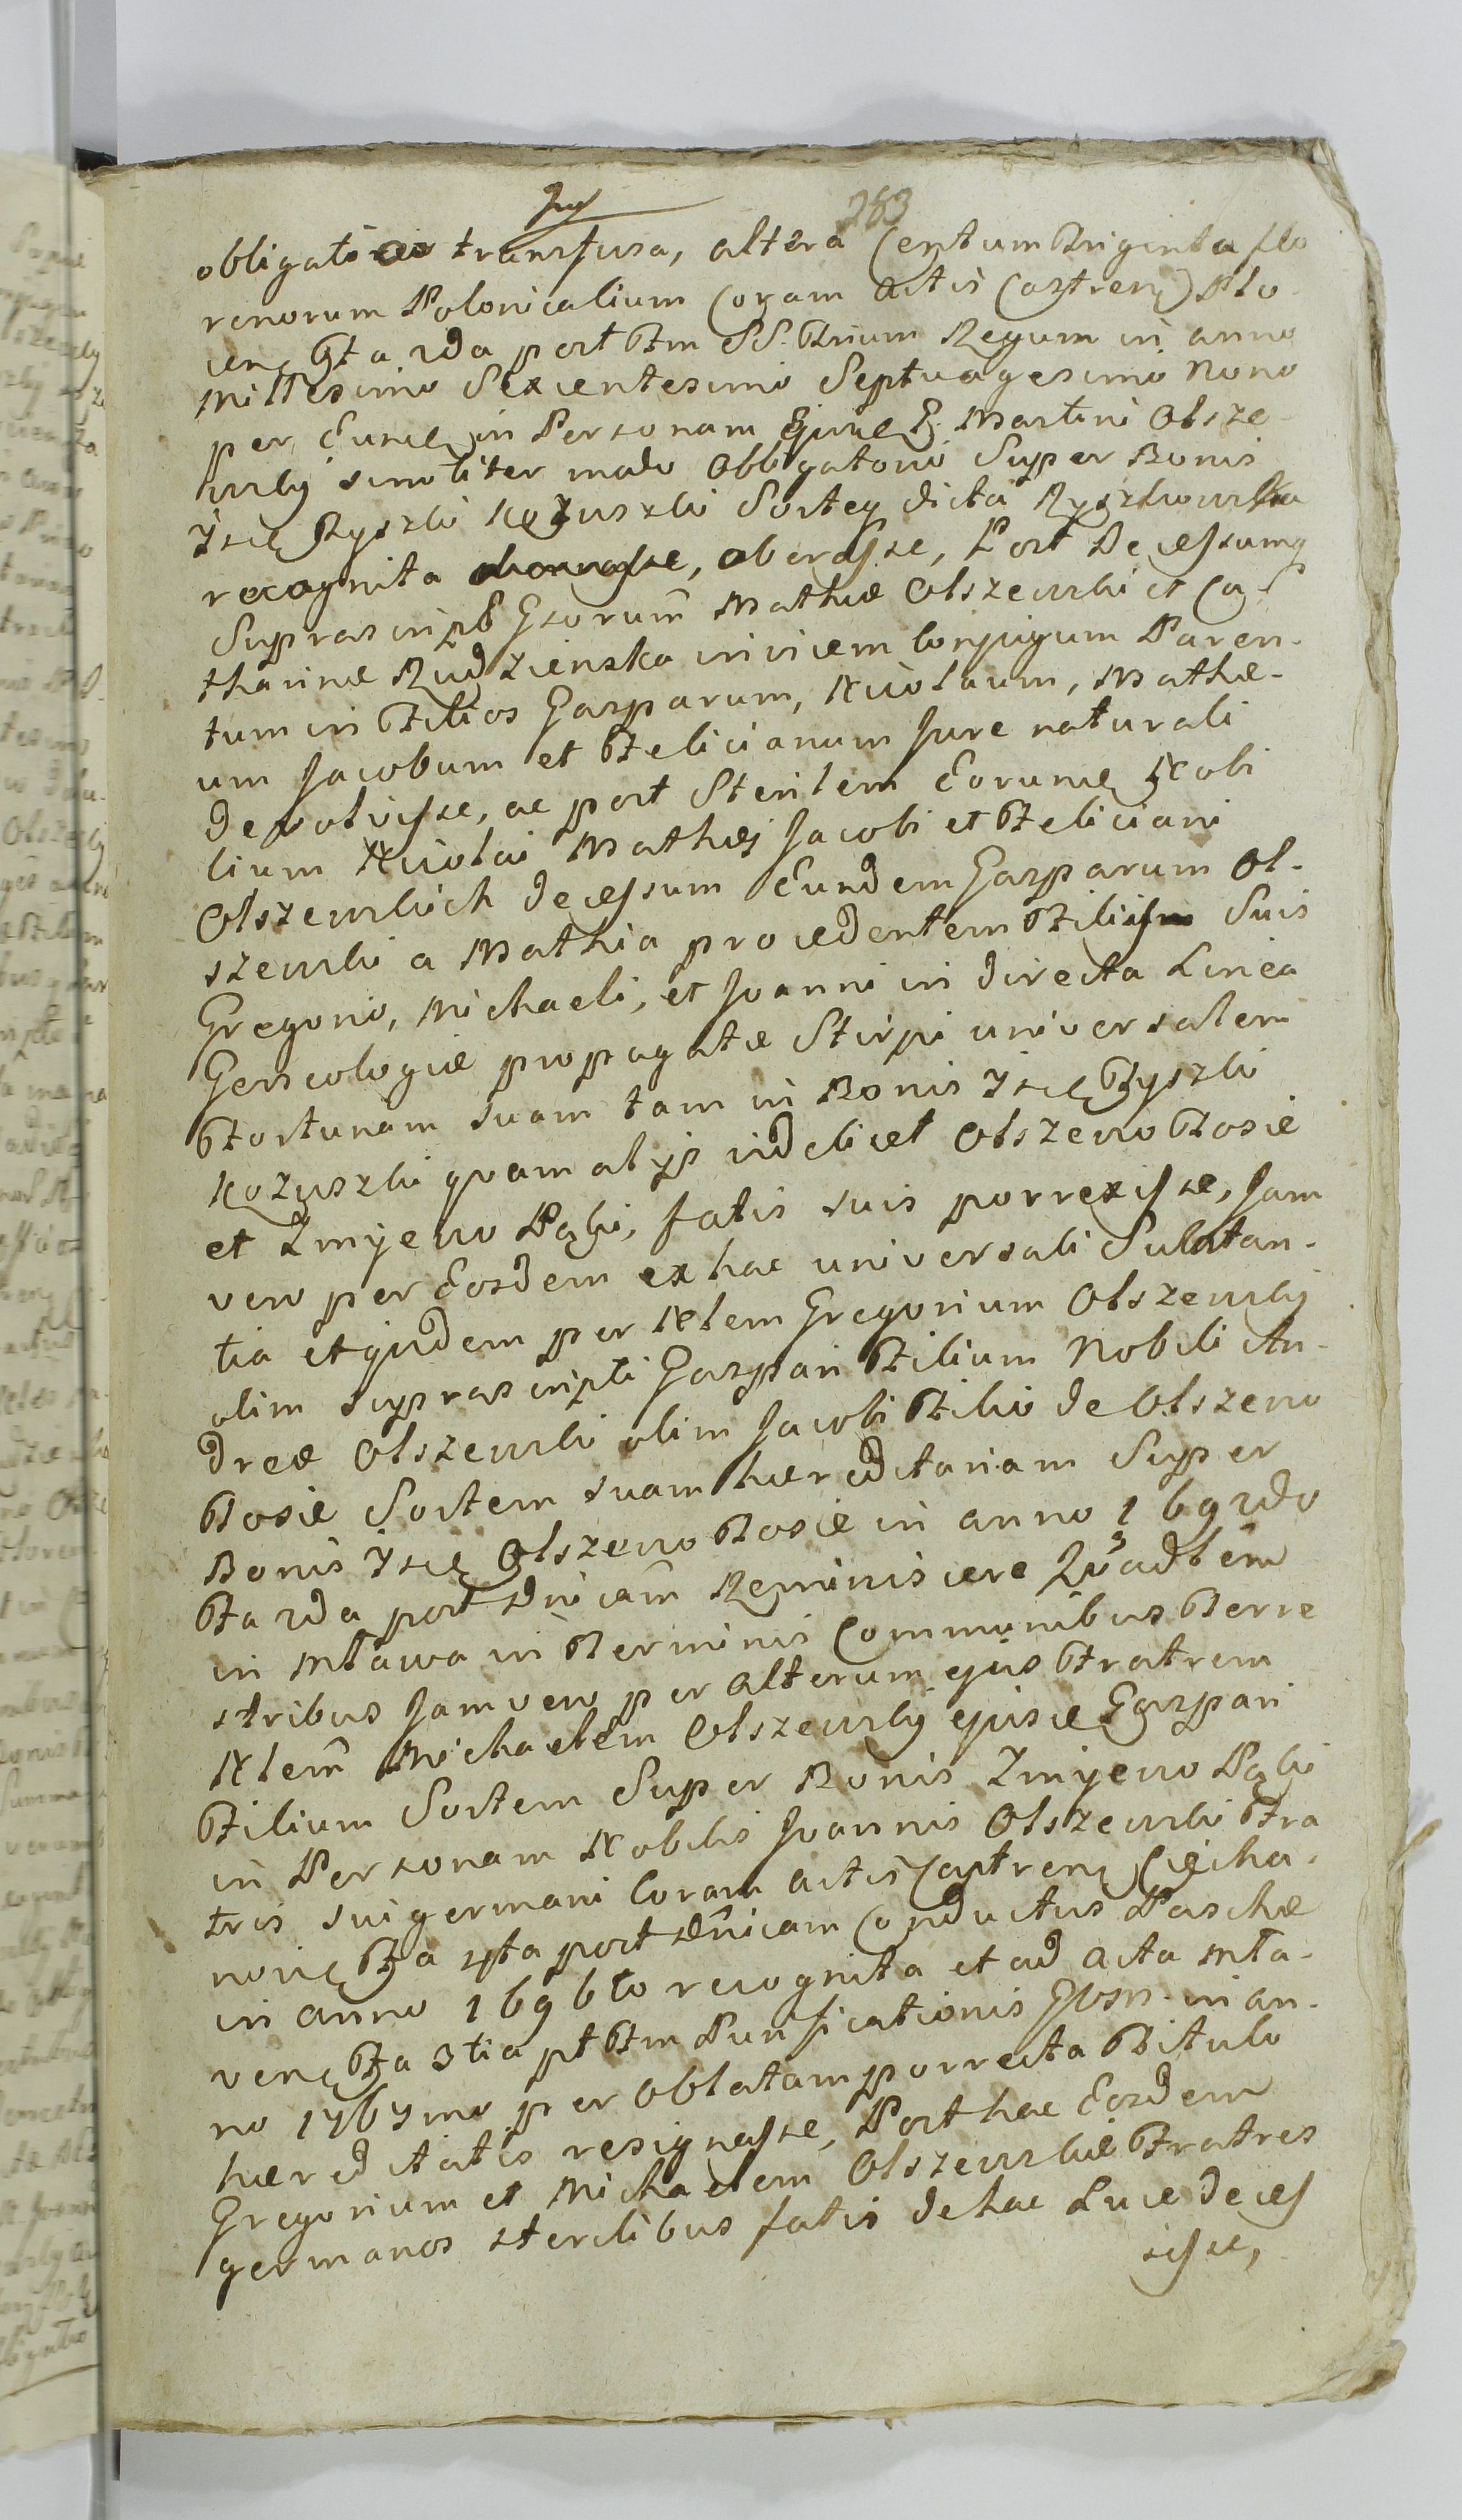 283
Jug
obligatorio transfusa, altera Centum Triginta flo
renorum Polonicalium Coram Actis Castren) Plo-
cen Fta 2da post Ftm SS. Trium Regum in anno
Millesimo Sexcentesimo Septuagesimo Nono
per Eund in Personam Ejusd G. Martini Olsze-
wsky similiter modo Obligatorio Super Bonis
Iisd Ryszki Kożuszki Sorte dicta Ryszkowska
recognita oberasse, Post Decessumq
Suprascript Gsorum Mathiæ Olszewski et Ca-
tharinæ Rudzienska invicem Conjugum Paren-
tum in Filios Gasparum, Nicolaum, Mathæ-
um Jacobum et Felicianum Jure naturali
devolvisse, ac post Sterilem Eorund Nobi
lium Nicolai Mathæj Jacobi et Feliciani
Olszewskich decessum Eundem Gasparum Ol-
szewski a Mathia procedentem Filijs Suis
Gregorio, Michaeli, et Joanni in directa Linea
Genealogiæ propagatæ Stirpi universalem
Fortunam suam tam in Bonis Iisd Ryszki
Kożuszki quam alijs videlicet Olszewo Tosie
et Żmijewo Pąki, fatis suis porrexisse, Jam
vero per Eosdem ex hac universali Substan-
tia et quidem per Nlem Gregorium Olszewskj
olim suprascripti Gaspari Filium Nobili An-
dreæ Olszewski olim Jacobi Filio de Olszewo
Tosie Sortem suam hæreditariam Super
Bonis Iisd Olszewo Tosie in anno 1692do
Fta 2da post Dnicam Reminiscere Quadlem
in Mława in Terminis Communibus Terre
stribus Jam vero per Alterum ejus Fratrem
Nlem Michaelem Olszewsky ejusd Gaspari
Filium Sortem Super Bonis Żmijewo Pąki
in Personam Nobilis Joannis Olszewski Fra
tris sui germani Coram Actis Castren Ciecha-
novien Fta 2da post Dnicam Conductus Paschæ
in anno 1696to recognita et ad Acta Mła-
vien Fta 3tia pt Ftm Purificationis GVM. in an-
no 1767mo per Oblatam porrecta Titulo
hæreditatis resignasse, Post hac Eosdem
Gregorium et Michaelem Olszewskie Fratres
germanos sterilibus fatis de hac Luce deces
sisse,